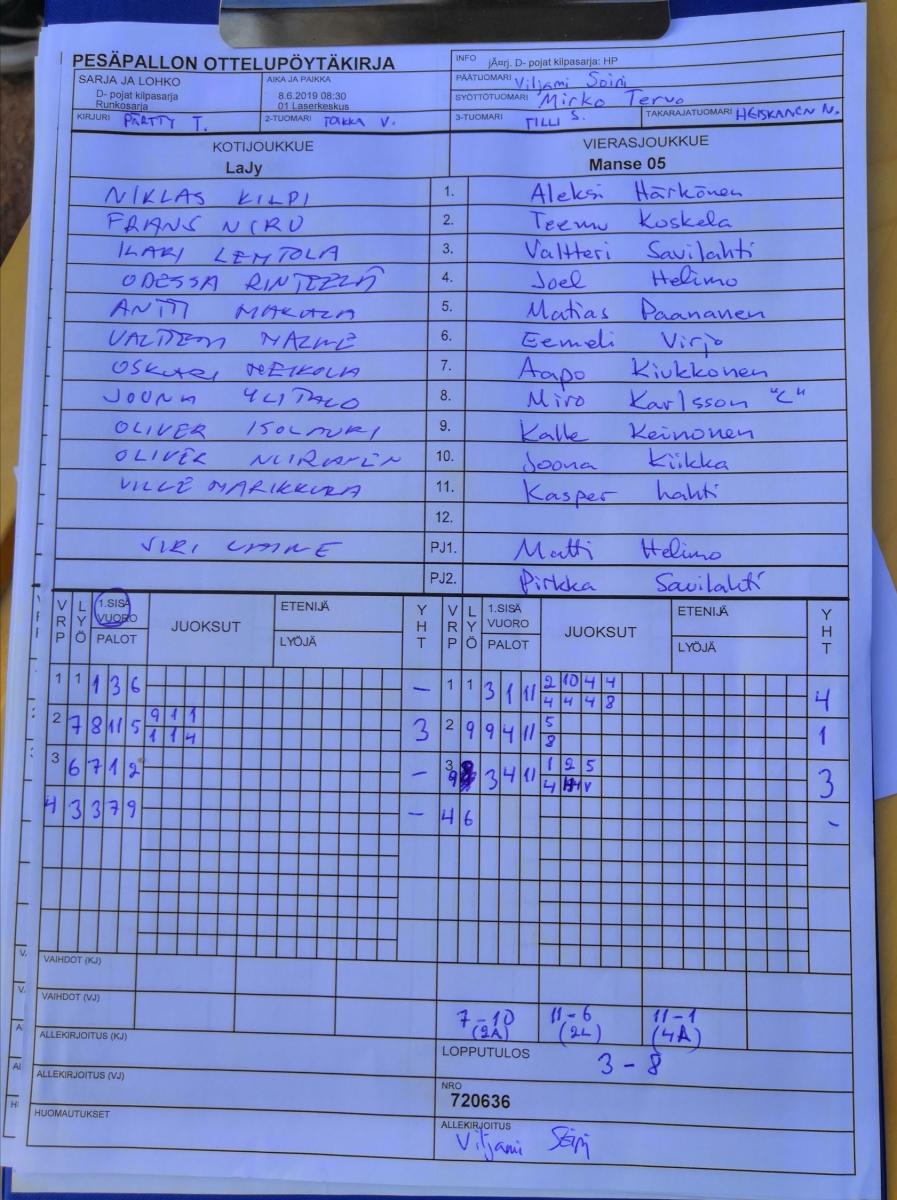 PESÄPALLON OTTELUPÖYTÄKIRJA
INFO jÃ¤rj. D- pojat kilpasarja: HP
SARJA JA LOHKO
D- pojat kilpasarja
Runkosarja
AIKA JA PAIKKA
8.6.2019 08:30
01 Laserkeskus
PÄÄTUOMARI Viljami Soini
SYÖTTÖTUOMARI Mirko Tervo
KIRJURI PÄRTTY T. 2-TUOMARI TOKKA V. 3-TUOMARI TILLI S. TAKARAJATUOMARI HEISKANEN N.
KOTIJOUKKUE VIERASJOUKKUE
LaJy Manse 05
NIKLAS KILPI 1. Aleksi Härkönen
FRANS NIRU 2. Teemu Koskela
ILARI LEHTOLA 3. Valtteri Savilahti
ODESSA 4. Joel Helimo
ANTTI 5. Matias Paananen
6. Eemeli Virjo
OSKARI HEIKOLA 7. Aapo Kiukkonen
JOONA YLITALO 8. Miro Karlsson "C"
OLIVER ISOLAURI 9. Kalle Keinonen
OLIVER 10. Joona Kiikka
VILLE 11. Kasper Lahti
12.
PJ1. Matti Helimo
PJ2. Pirkka Savilahti
VRP LYÖ 1.SISÄ VUORO PALOT JUOKSUT ETENIJÄ LYÖJÄ YHT VRP LYÖ 1.SISÄ VUORO PALOT JUOKSUT ETENIJÄ LYÖJÄ YHT
1 1 1 3 6 – 1 1 3 1 11 2 10 4 4 4
4 4 4 8
2 7 8 11 5 9 1 1 3 2 9 9 4 11 5 1
1 1 4 8
3 6 7 1 2 – 3 9 3 4 11 1 2 5 3
4
4 3 3 7 9 – 4 6 -
VAIHDOT (KJ)
VAIHDOT (VJ)
7-10 11-6 11-1
(2A) (2L) (4A)
ALLEKIRJOITUS (KJ)
LOPPUTULOS 3 - 8
ALLEKIRJOITUS (VJ)
NRO
720636
HUOMAUTUKSET
ALLEKIRJOITUS
Viljami Soini